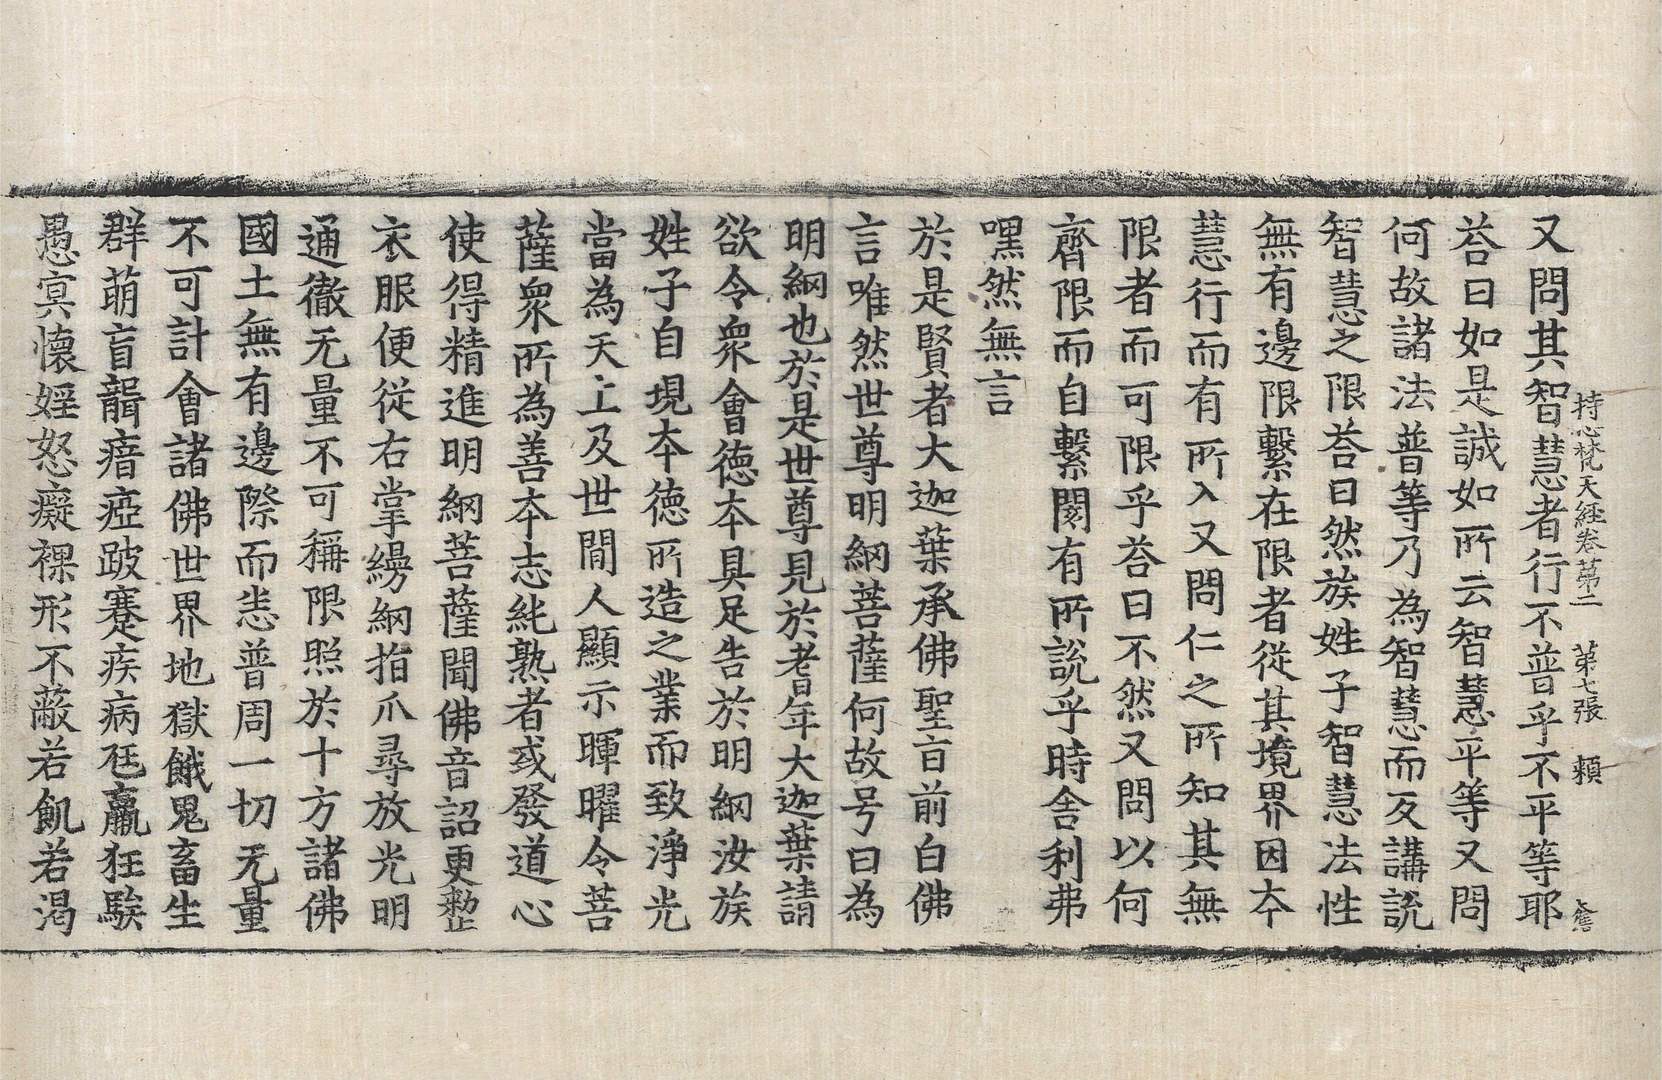 持心梵天経卷第二 第七張 賴
又問其智慧者行不普乎不平等耶
荅曰如是誠如所云智慧平等又問
何故諸法普等乃為智慧而反講說
智慧之限荅曰然族姓子智慧法性
無有邊限繫在限者從其境界因本
慧行而有所入又問仁之所知其無
限者而可限乎荅曰不然又問以何
齊限而自繫閡有所說乎時舍利弗
嘿然無言
於是賢者大迦葉承佛聖旨前白佛
言唯然世尊明網菩薩何故号曰為
明網也於是世尊見於耆年大迦葉請
欲令衆會德本具足告於明網汝族
姓子自現本德所造之業而致淨光
當為天上及世間人顯示暉曜令菩
薩衆所為善本志純熟者或發道心
使得精進明網菩薩聞佛音詔更整
衣服便從右掌縵網指爪尋放光明
通徹无量不可稱限照於十方諸佛
國土無有邊際而悉普周一切无量
不可計會諸佛世界地獄餓鬼畜生
群萌盲聾瘖瘂跛蹇疾病尫羸狂騃
愚冥懷婬怒癡裸形不蔽若飢若渴